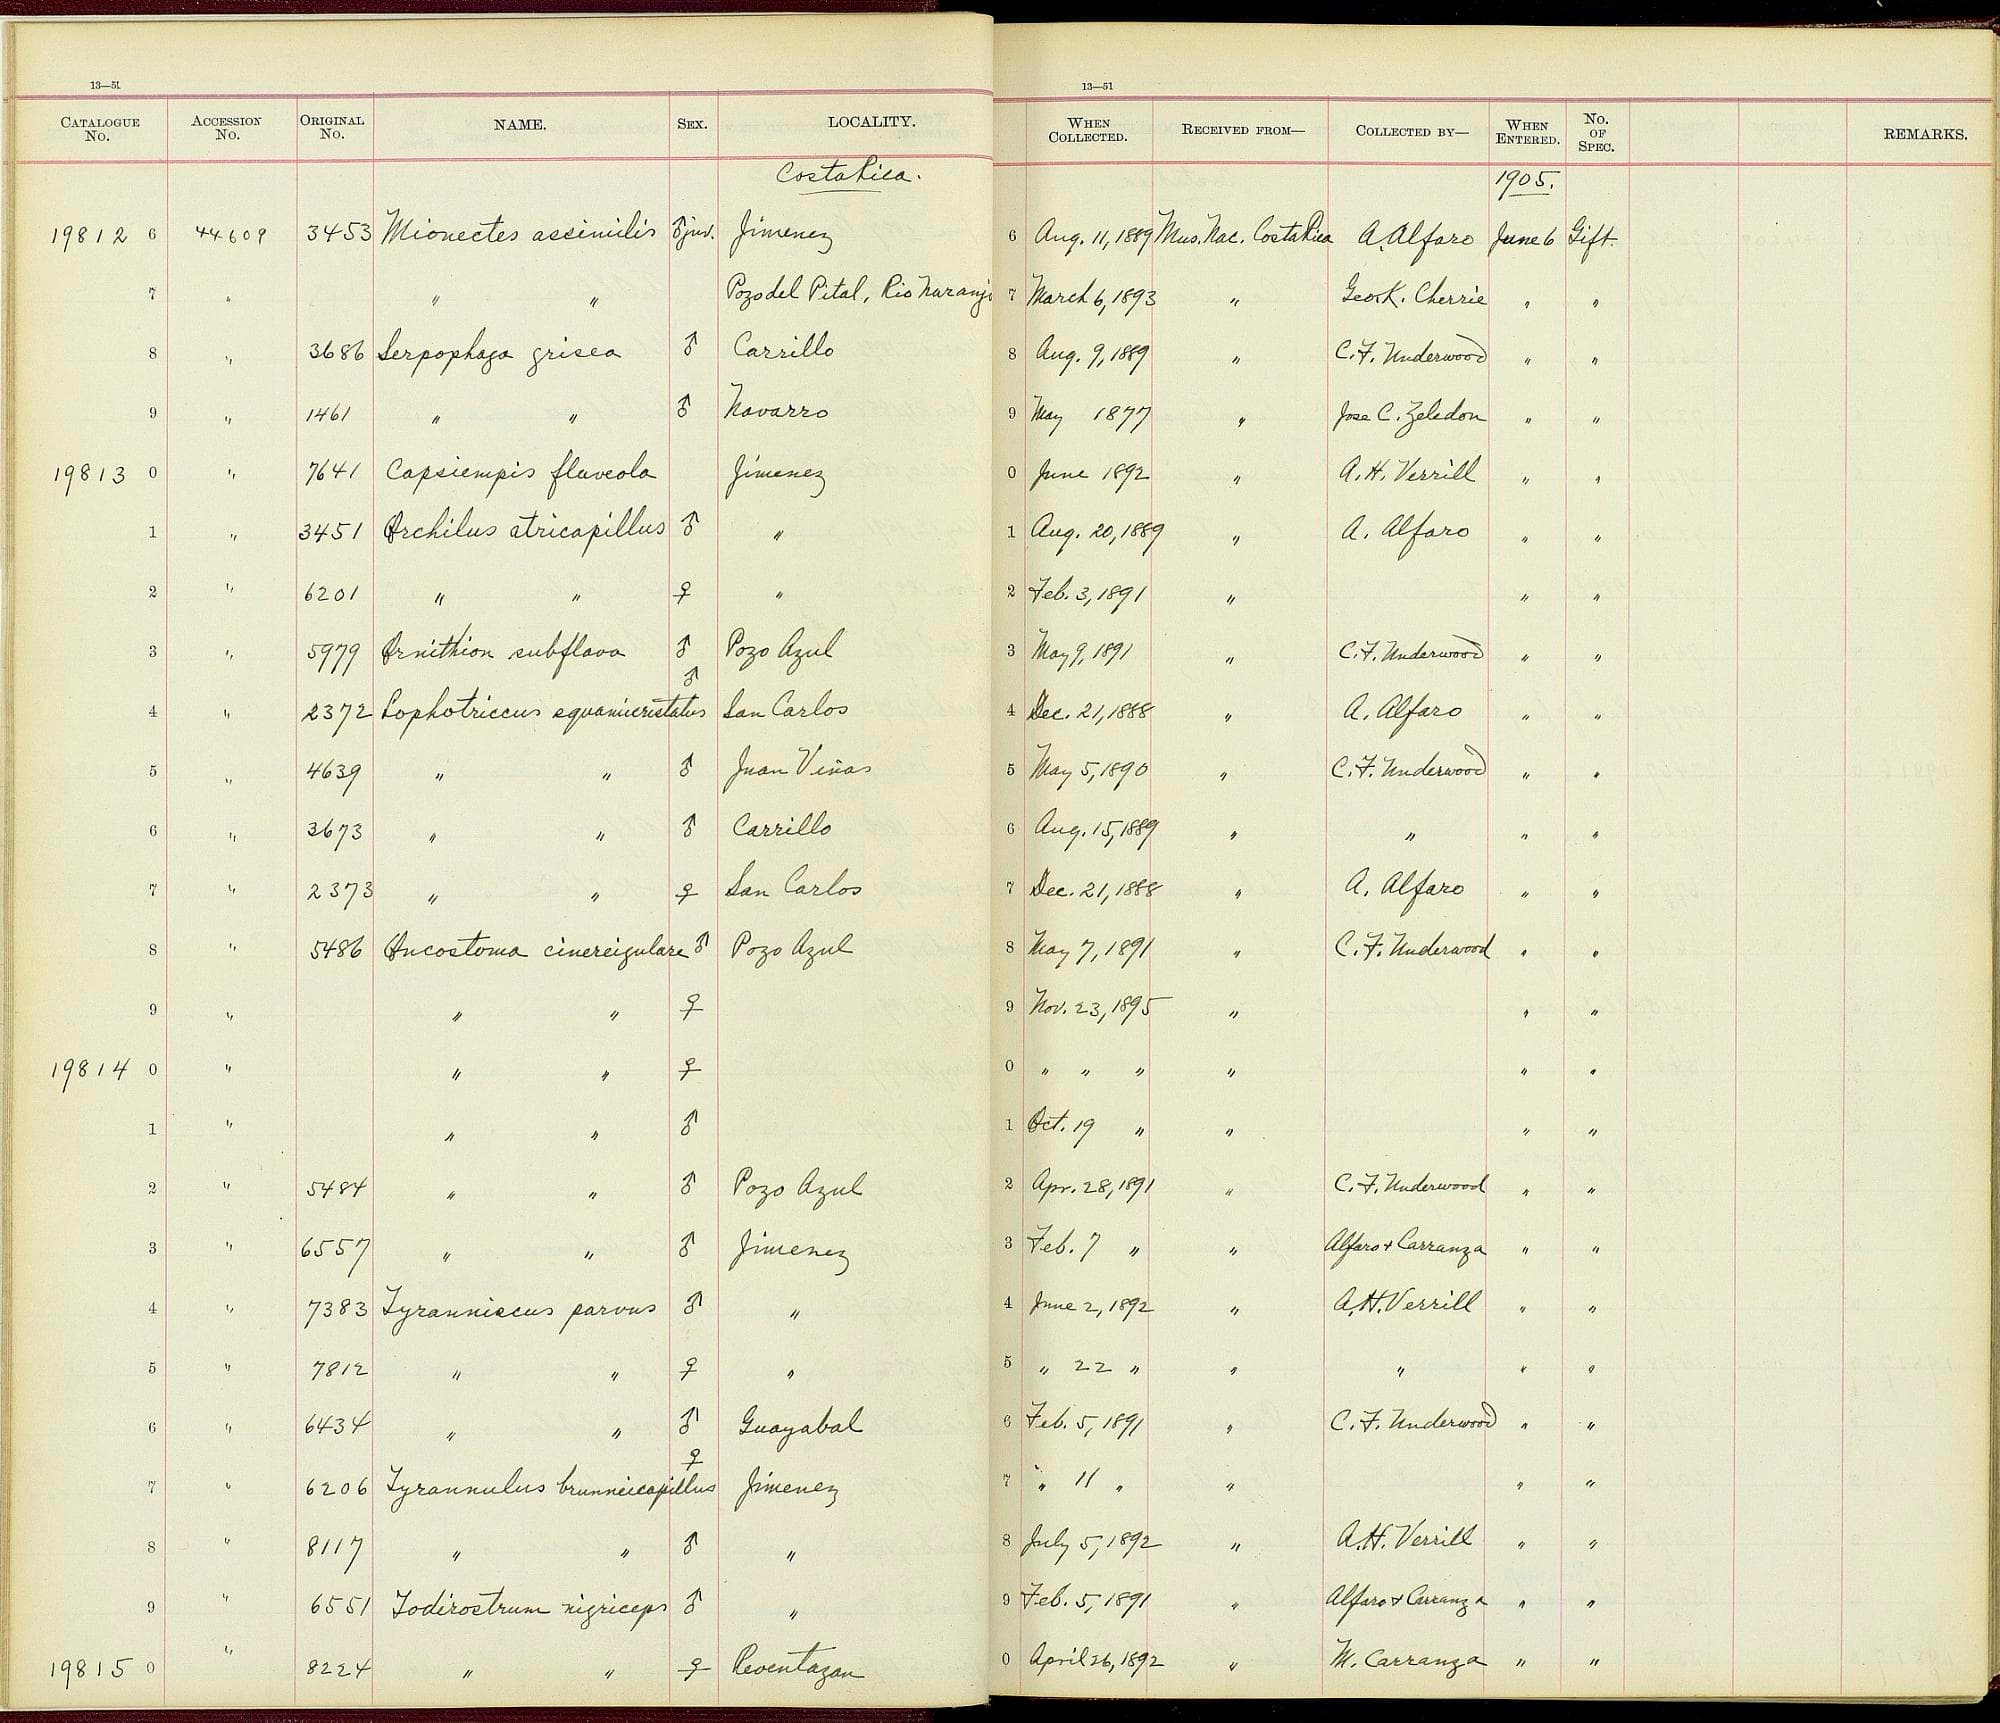 13—51
CATALOGUE No. ACCESSION No. ORIGINAL No. NAME. SEX. LOCALITY.
Costa Rica.
19812 6 44609 3453 Mionectes assimilis ♂ juv. Jimenez
7 " " " Pozo del Pital, Rio Naranjo
8 " 3686 Serpophaga grisea ♂ Carrillo
9 " 1461 " " ♂ Navarro
19813 0 " 7641 Capsiempis flaveola Jimenez
1 " 3451 Orchilus atricapillus ♂ "
2 " 6201 " " ♀ "
3 " 5979 Ornithion subflava ♂ Pozo Azul
4 " 2372 Lophotriccus squamicristatus ♂ San Carlos
5 " 4639 " " ♂ Juan Viñas
6 " 3673 " " ♂ Carrillo
7 " 2373 " " ♀ San Carlos
8 " 5486 Oncostoma cinereigulare ♂ Pozo Azul
9 " " " ♀
19814 0 " " " ♀
1 " " " ♂
2 " 5484 " " ♂ Pozo Azul
3 " 6557 " " ♂ Jimenez
4 " 7383 Tyranniscus parvus ♂ "
5 " 7812 " " ♀ "
6 " 6434 " " ♂ Guayabal
7 " 6206 Tyrannulus brunneicapillus ♀ Jimenez
8 " 8117 " " ♂ "
9 " 6551 Todirostrum nigriceps ♂ "
19815 0 " 8224 " " ♀ Reventazan
13—51
WHEN COLLECTED. RECEIVED FROM— COLLECTED BY— WHEN ENTERED. No. OF SPEC. REMARKS.
1905.
6 Aug. 11, 1889 Mus. Nac. Costa Rica A. Alfaro June 6 Gift.
7 March 6, 1893 " Geo. K. Cherrie " "
8 Aug. 9, 1889 " C. F. Underwood " "
9 May 1877 " Jose C. Zeledon " "
0 June 1892 " A. H. Verrill " "
1 Aug. 20, 1889 " A. Alfaro " "
2 Feb. 3, 1891 " " "
3 May 9, 1891 " C. F. Underwood " "
4 Dec. 21, 1888 " A. Alfaro " "
5 May 5, 1890 " C. F. Underwood " "
6 Aug. 15, 1889 " " " "
7 Dec. 21, 1888 " A. Alfaro " "
8 May 7, 1891 " C. F. Underwood " "
9 Nov. 23, 1895 " " "
0 " " " " " "
1 Oct. 19 " " " "
2 Apr. 28, 1891 " C. F. Underwood " "
3 Feb. 7 " " Alfaro + Carranza " "
4 June 2, 1892 " A. H. Verrill " "
5 " 22 " " " " "
6 Feb. 5, 1891 " C. F. Underwood " "
7 " 11 " " " "
8 July 5, 1892 " A. H. Verrill " "
9 Feb. 5, 1891 " Alfaro + Carranza " "
0 April 26, 1892 " M. Carranza " "